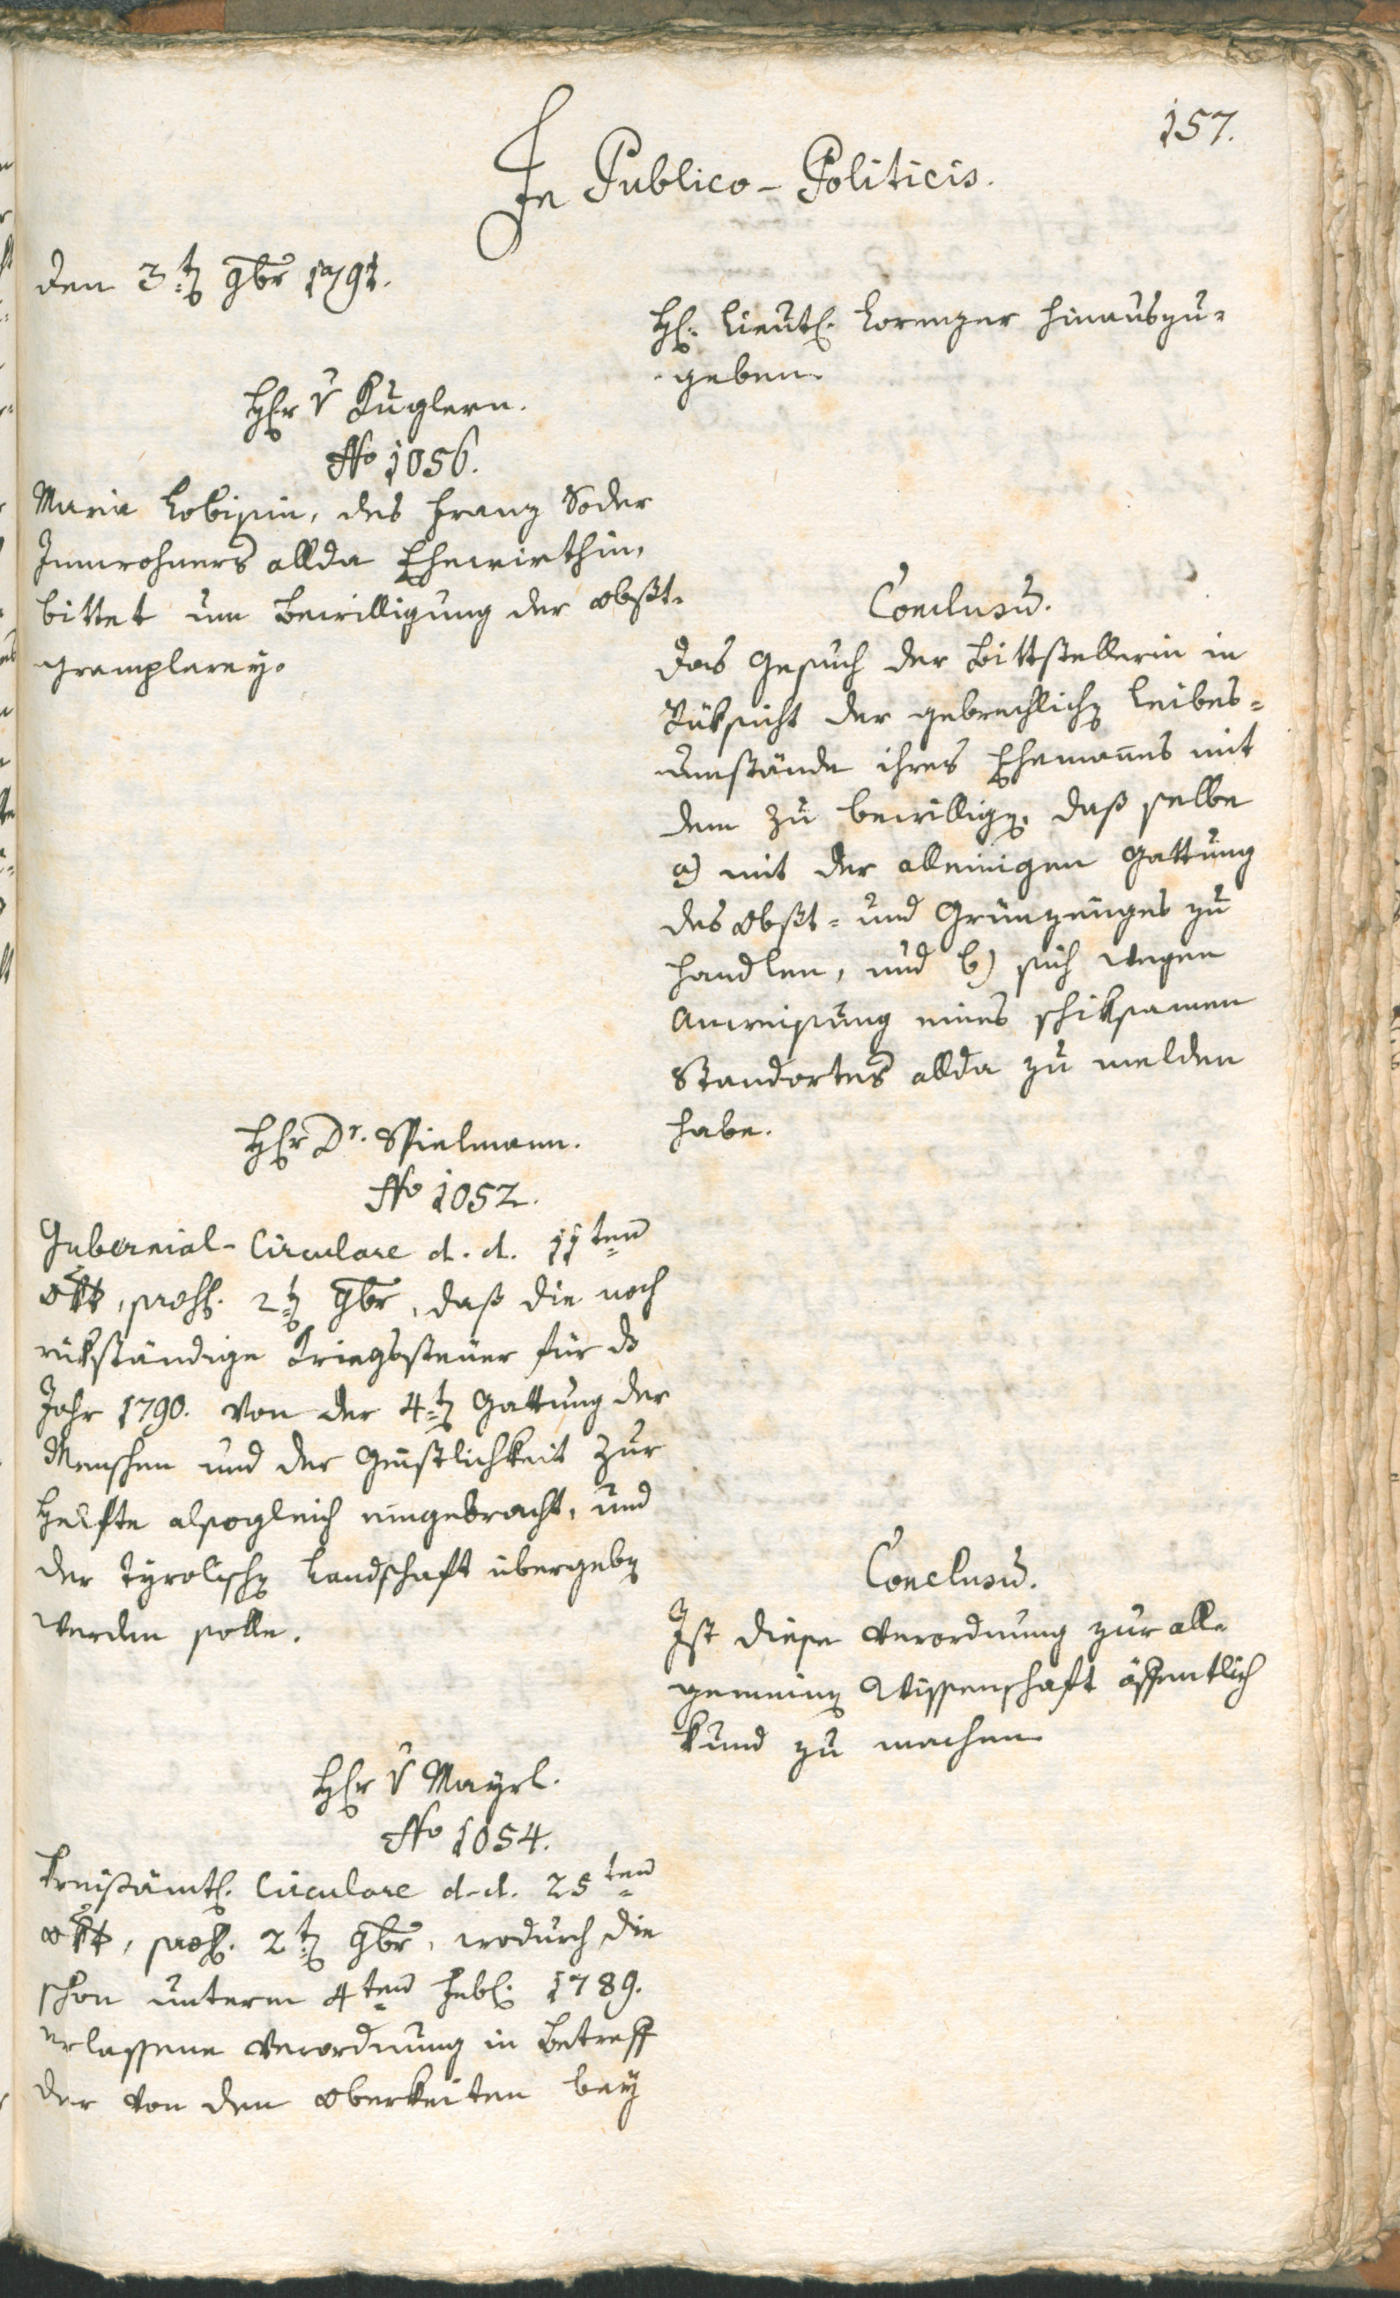 157.
In Publico-Politicis.
den 3t[en] 9br 1791.
H[er]r v Kuglern.
No 1056.
Maria Lobisin, des Franz Soder
Innwohners allda Ehewirthin,
bittet um Bewilligung der Obst-
gramplerey.
H[er]r Dr. Spielmann.
No 1052.
Gubernial-Circulare d. d. 11ten
8br, praes. 2t[en] 9br, daß die noch
rükständige Kriegssteuer für ds
Jahr 1790. von der 4t[en] Gattung der
Menschen und der Geistlichkeit zur
Helfte alsogleich eingebracht, und
der tyrolisch[en] Landschaft übergeb[en]
werden solle.
H[er]r v Mayrl.
No 1054.
Kreisämtl. Circulare d. d. 25ten
8br, praes. 2t[en] 9br, wodurch die
schon unterm 4ten Febr. 1789.
erlassene Verordnung in Betreff
der von den Oberkeiten bey
H[errn] Lieut. Lorenzer hinauszu-
geben.
Conclusū.
Das Gesuch der Bittstellerin in
Rüksicht der gebrechlich[en] Leibes-
umstände ihres Ehemañes mit
dem zu bewillig[en], daß selbe
a) mit der alleinigen Gattung
des Obst- und Grünzeuges zu
handlen, und b) sich wegen
Anweisung eines schiksamen
Standortes allda zu melden
habe.
Conclusū.
Ist diese Verordnung zur all-
gemein[en] Wissenschaft öffentlich
kund zu machen.